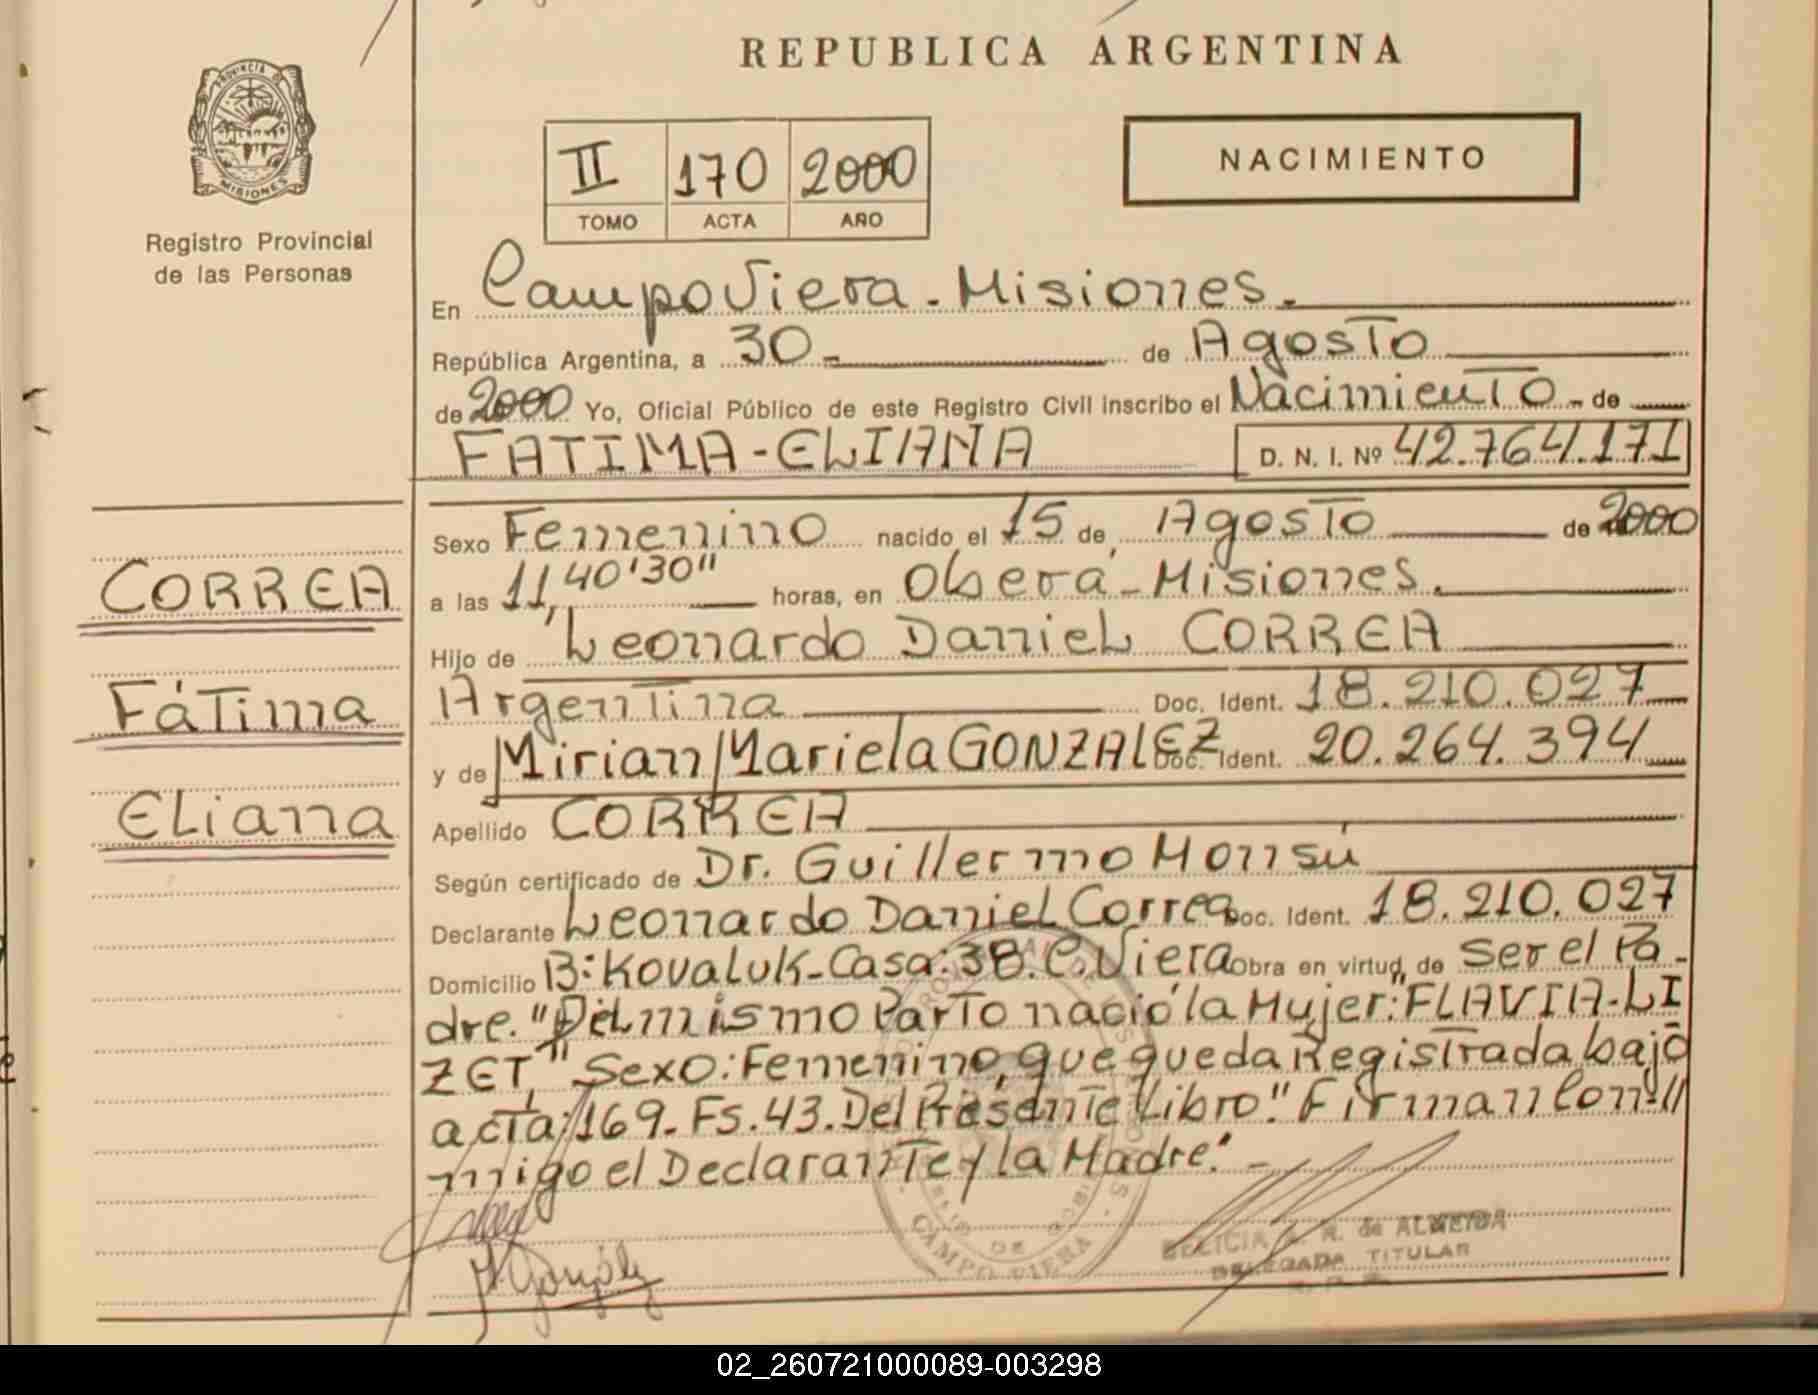 REPUBLICA ARGENTINA
PROVINCIA DE
MISIONES
Registro Provincial
de las Personas
II 170 2000
TOMO ACTA AÑO
NACIMIENTO
En Campo Viera - Misiones.
República Argentina, a 30.- de Agosto
de 2000 Yo, Oficial Público de este Registro Civil inscribo el Nacimiento - de
FATIMA - ELIANA D. N. I. Nº 42.764.171
Sexo Femenino nacido el 15 de Agosto de 2000
a las 11,40'30" horas, en Oberá - Misiones.
Hijo de Leonardo Daniel CORREA
Argentina Doc. Ident. 18.210.027
y de Mirian Mariela GONZALEZ Doc. Ident. 20.264.394
Apellido CORREA
Según certificado de Dr. Guillermo Monsú
Declarante Leonardo Daniel Correa Doc. Ident. 18.210.027
Domicilio B: Kovaluk - Casa: 38. C. Viera Obra en virtud de ser el Pa-
dre. "Del mismo Parto nació la Mujer: "FLAVIA - LI
ZET," Sexo: Femenino, que queda Registrada bajo
acta: 169. Fs. 43. Del Presente Libro". Firman con-//
migo el Declarante y la Madre". -
CORREA
Fátima
Eliana
M. Gonzalez
CAMPO VIERA
DELICIA A. R. de ALMEIDA
DELEGADA TITULAR
02_260721000089-003298